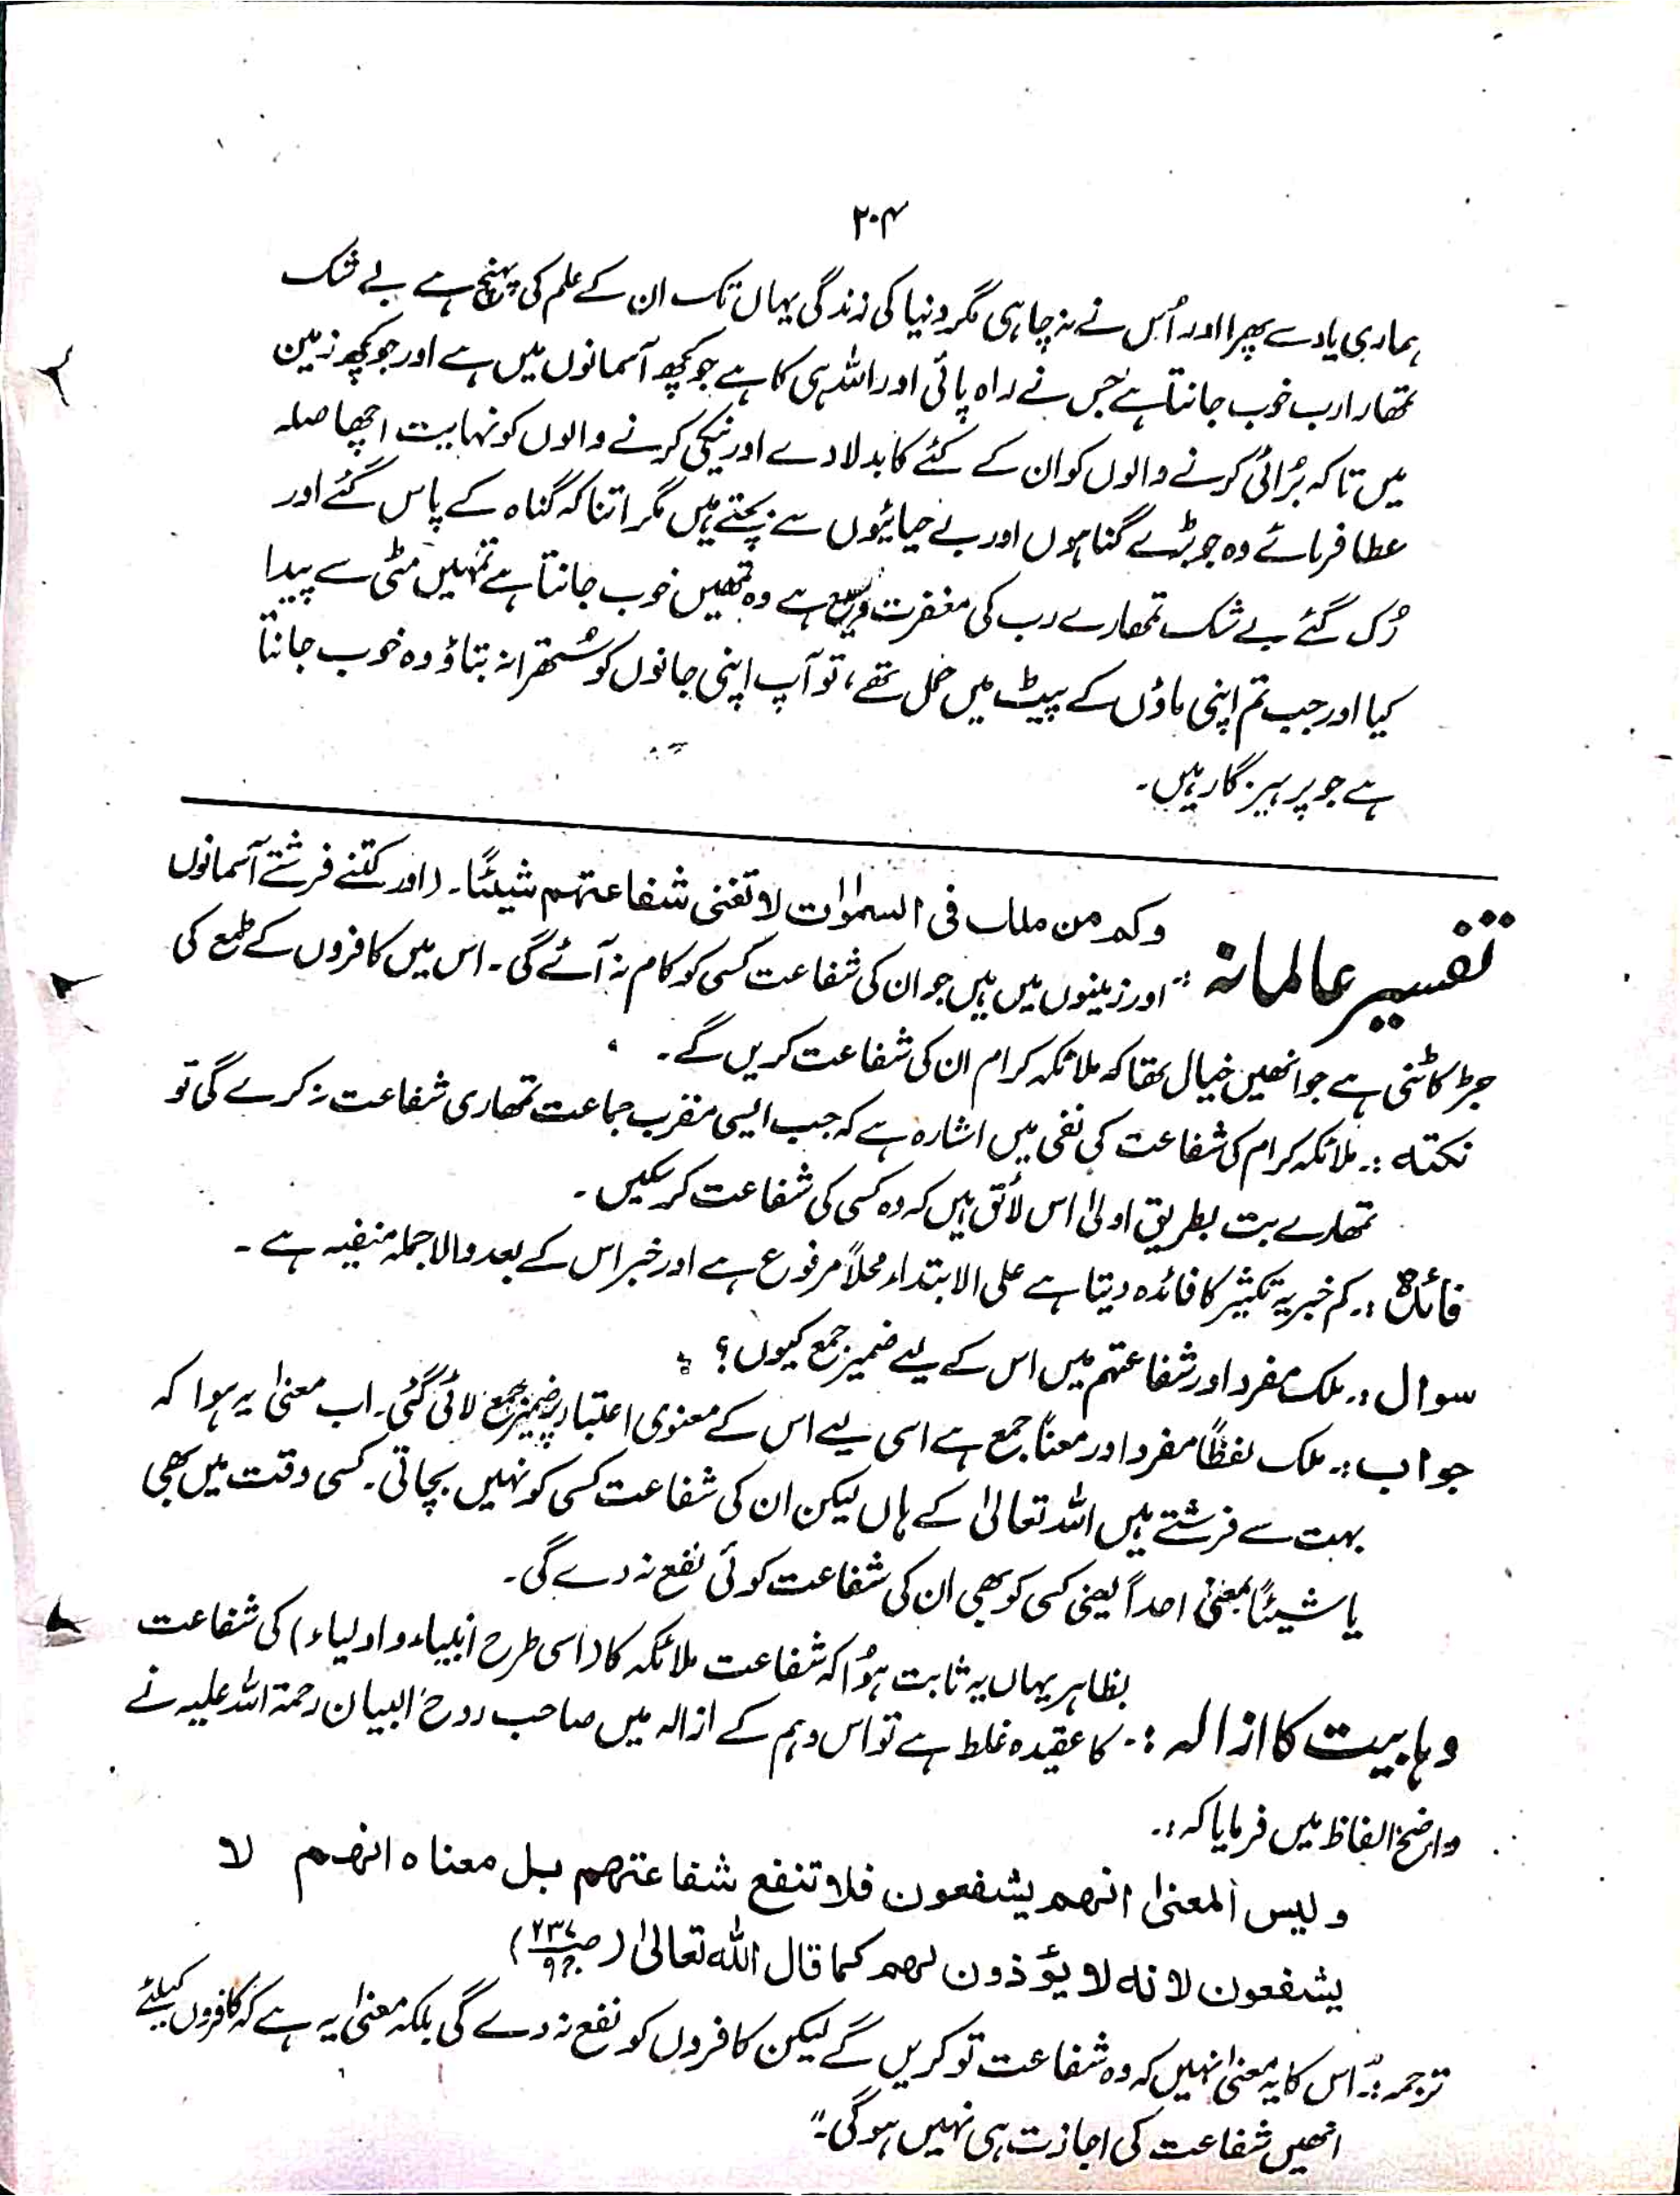 ۲۰۴
ہماری یاد سے پھرا اور اُس نے نہ چاہی مگر دنیا کی زندگی یہاں تک ان کے علم کی پہنچ ہے بے شک
تمھارا رب خوب جانتا ہے جس نے راہ پائی اور اللہ ہی کا ہے جو کچھ آسمانوں میں ہے اور جو کچھ زمین
میں تا کہ بُرائی کرنے والوں کو ان کے کئے کا بدلا دے اور نیکی کرنے والوں کو نہایت اچھا صلہ
عطا فرمائے وہ جو بڑے گناہوں اور بے حیائیوں سے بچتے ہیں مگر اتنا کہ گناہ کے پاس گئے اور
رُک گئے بے شک تمھارے رب کی مغفرت وسیع ہے وہ تمھیں خوب جانتا ہے تمہیں مٹی سے پیدا
کیا اور جب تم اپنی ماؤں کے پیٹ میں حمل تھے، تو آپ اپنی جانوں کو سُتھرا نہ بتاؤ وہ خوب جانتا
ہے جو پرہیزگار ہیں۔
تفسیر عالمانہ :- وکم من ملک فی السمٰوٰات لا تغنی شفاعتہم شیئًا۔ (اور کتنے فرشتے آسمانوں
اور زمینوں میں ہیں جو ان کی شفاعت کسی کو کام نہ آئے گی۔ اس میں کافروں کے طمع کی
جڑ کاٹنی ہے جو انھیں خیال تھا کہ ملائکہ کرام ان کی شفاعت کریں گے۔
نکتہ :۔ ملائکہ کرام کی شفاعت کی نفی میں اشارہ ہے کہ جب ایسی مقرب جماعت تمھاری شفاعت نہ کرے گی تو
تمھارے بت بطریق اولیٰ اس لائق ہیں کہ وہ کسی کی شفاعت کر سکیں۔
فائدہ :۔ کم خبریہ تکثیر کا فائدہ دیتا ہے علی الابتداء محلاً مرفوع ہے اور خبر اس کے بعد والا جملہ منفیہ ہے۔
سوال :۔ ملک مفرد اور شفاعتہم میں اس کے لیے ضمیر جمع کیوں؟
جواب :۔ ملک لفظًا مفرد اور معنًا جمع ہے اسی لیے اس کے معنوی اعتبار پر ضمیر جمع لائی گئی۔ اب معنیٰ یہ ہوا کہ
بہت سے فرشتے ہیں اللہ تعالیٰ کے ہاں لیکن ان کی شفاعت کسی کو نہیں بچاتی۔ کسی وقت میں بھی
یا شیئًا بمعنیٰ احداً یعنی کسی کو بھی ان کی شفاعت کوئی نفع نہ دے گی۔
بظاہر یہاں یہ ثابت ہوُا کہ شفاعت ملائکہ کا (اسی طرح انبیاء و اولیاء) کی شفاعت
وہابیت کا ازالہ :۔ کا عقیدہ غلط ہے تو اس وہم کے ازالہ میں صاحب روح البیان رحمۃ اللہ علیہ نے
واضح الفاظ میں فرمایا کہ :۔
ولیس المعنیٰ انھم یشفعون فلا تنفع شفاعتھم بل معناہ انھم لا
یشفعون لانہ لا یؤذون لھم کما قال اللہ تعالیٰ (ص ۲۳۷ ج ۹)
ترجمہ :۔ "اس کا یہ معنیٰ نہیں کہ وہ شفاعت تو کریں گے لیکن کافروں کو نفع نہ دے گی بلکہ معنیٰ یہ ہے کہ کافروں کیلئے
انھیں شفاعت کی اجازت ہی نہیں ہوگی۔"